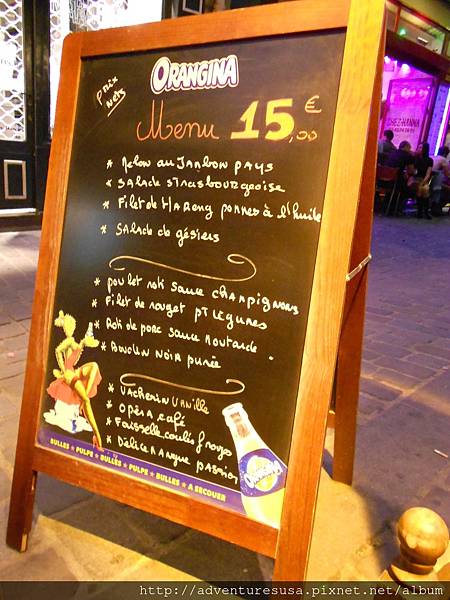 Prix
Nets
ORANGINA
Menu 15,00 €
* Melon au Jambon pays
* Salade strasbourgeoise
* Filet de Hareng pommes à l'huile
* Salade de gésiers
* poulet roti sauce champignons
* Filet de rouget pt légumes
* Roti de porc sauce moutarde.
* Boudin noir purée
* Vacherin Vanille
* Opéra café
* Faisselle coulis f rouges
* Délice mangue passion
ORANGINA
BULLES ★ PULPE ★ BULLES ★ PULPE ★ BULLES ★ A SECOUER
CHEZ HANNA
http://adventuresusa.pixnet.net/album